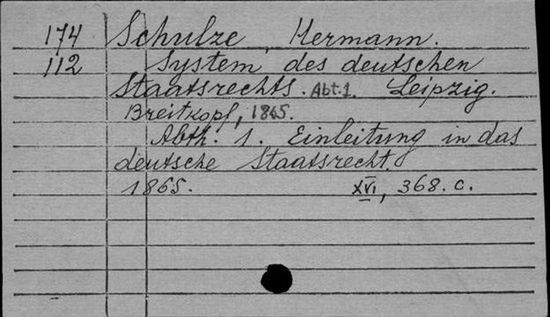 174 Schulze, Hermann.
112 System des deutschen
Staatsrechts. Abt. 1. Leipzig.
Breitkopf, 1865.
Abth. 1. Einleitung in das
deutsche Staatsrecht.
1865. XVI, 368. c.